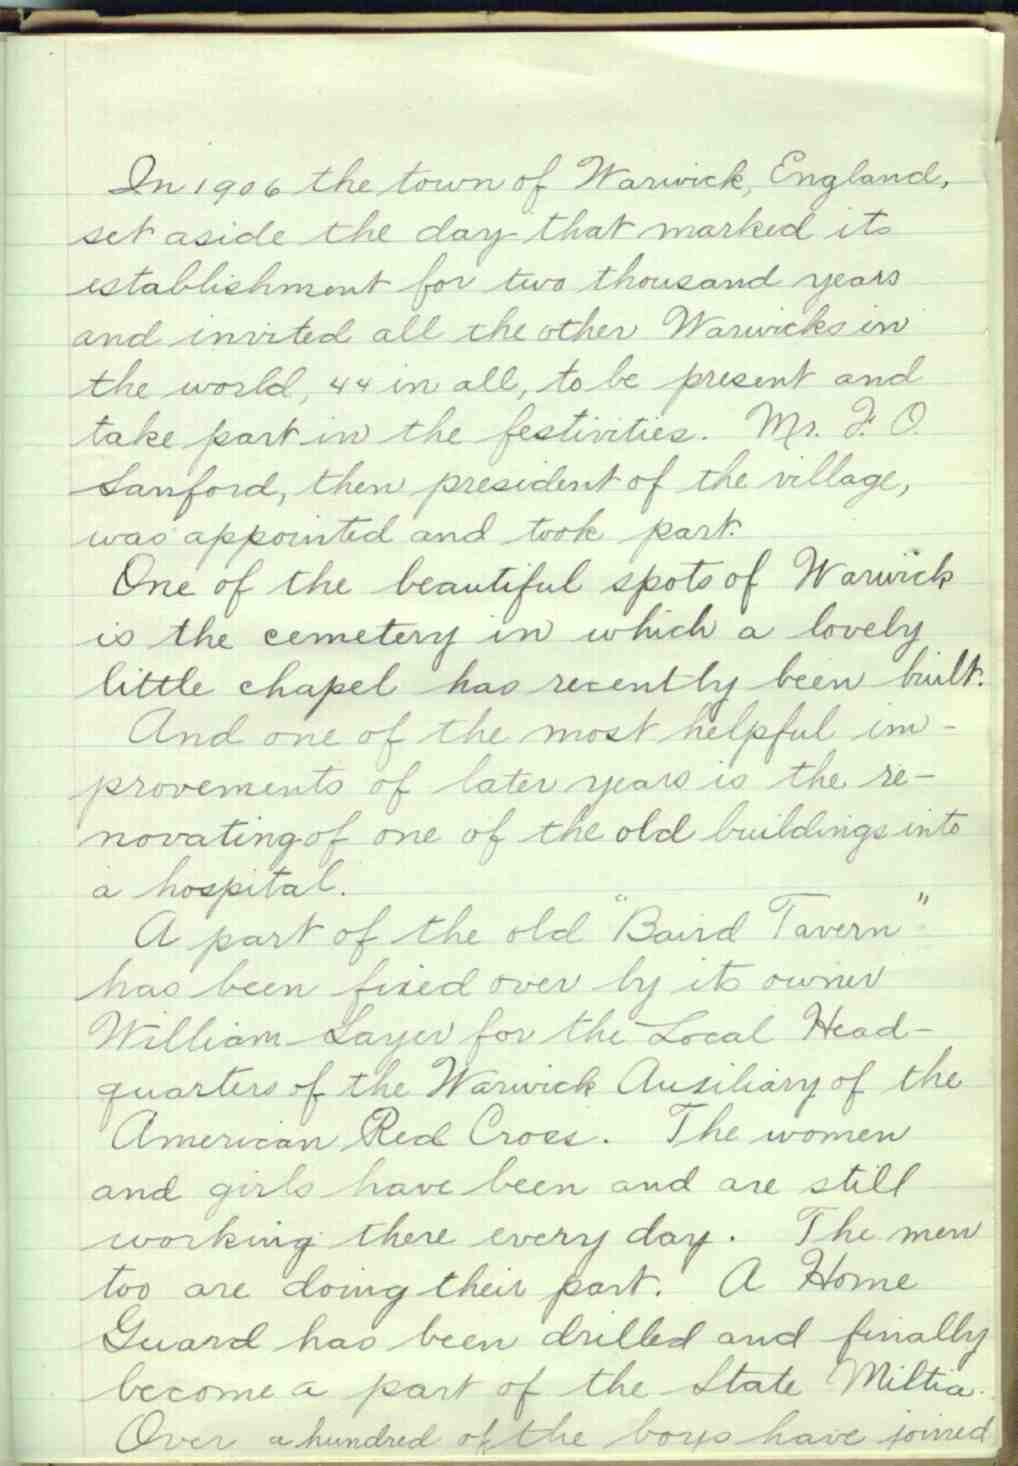 In 1906 the town of Warwick, England,
set aside the day that marked its
establishment for two thousand years
and invited all the other Warwicks in
the world, 44 in all, to be present and
take part in the festivities. Mr. F. O.
Sanford, then president of the village,
was appointed and took part.
One of the beautiful spots of Warwick
is the cemetery in which a lovely
little chapel has recently been built.
And one of the most helpful im-
provements of later years is the re-
novating of one of the old buildings into
a hospital.
A part of the old "Baird Tavern"
has been fixed over by its owner
William Sayer for the Local Head-
quarters of the Warwick Auxiliary of the
American Red Cross. The women
and girls have been and are still
working there every day. The men
too are doing their part. A Home
Guard has been drilled and finally
become a part of the State Miltia.
Over a hundred of the boys have joined